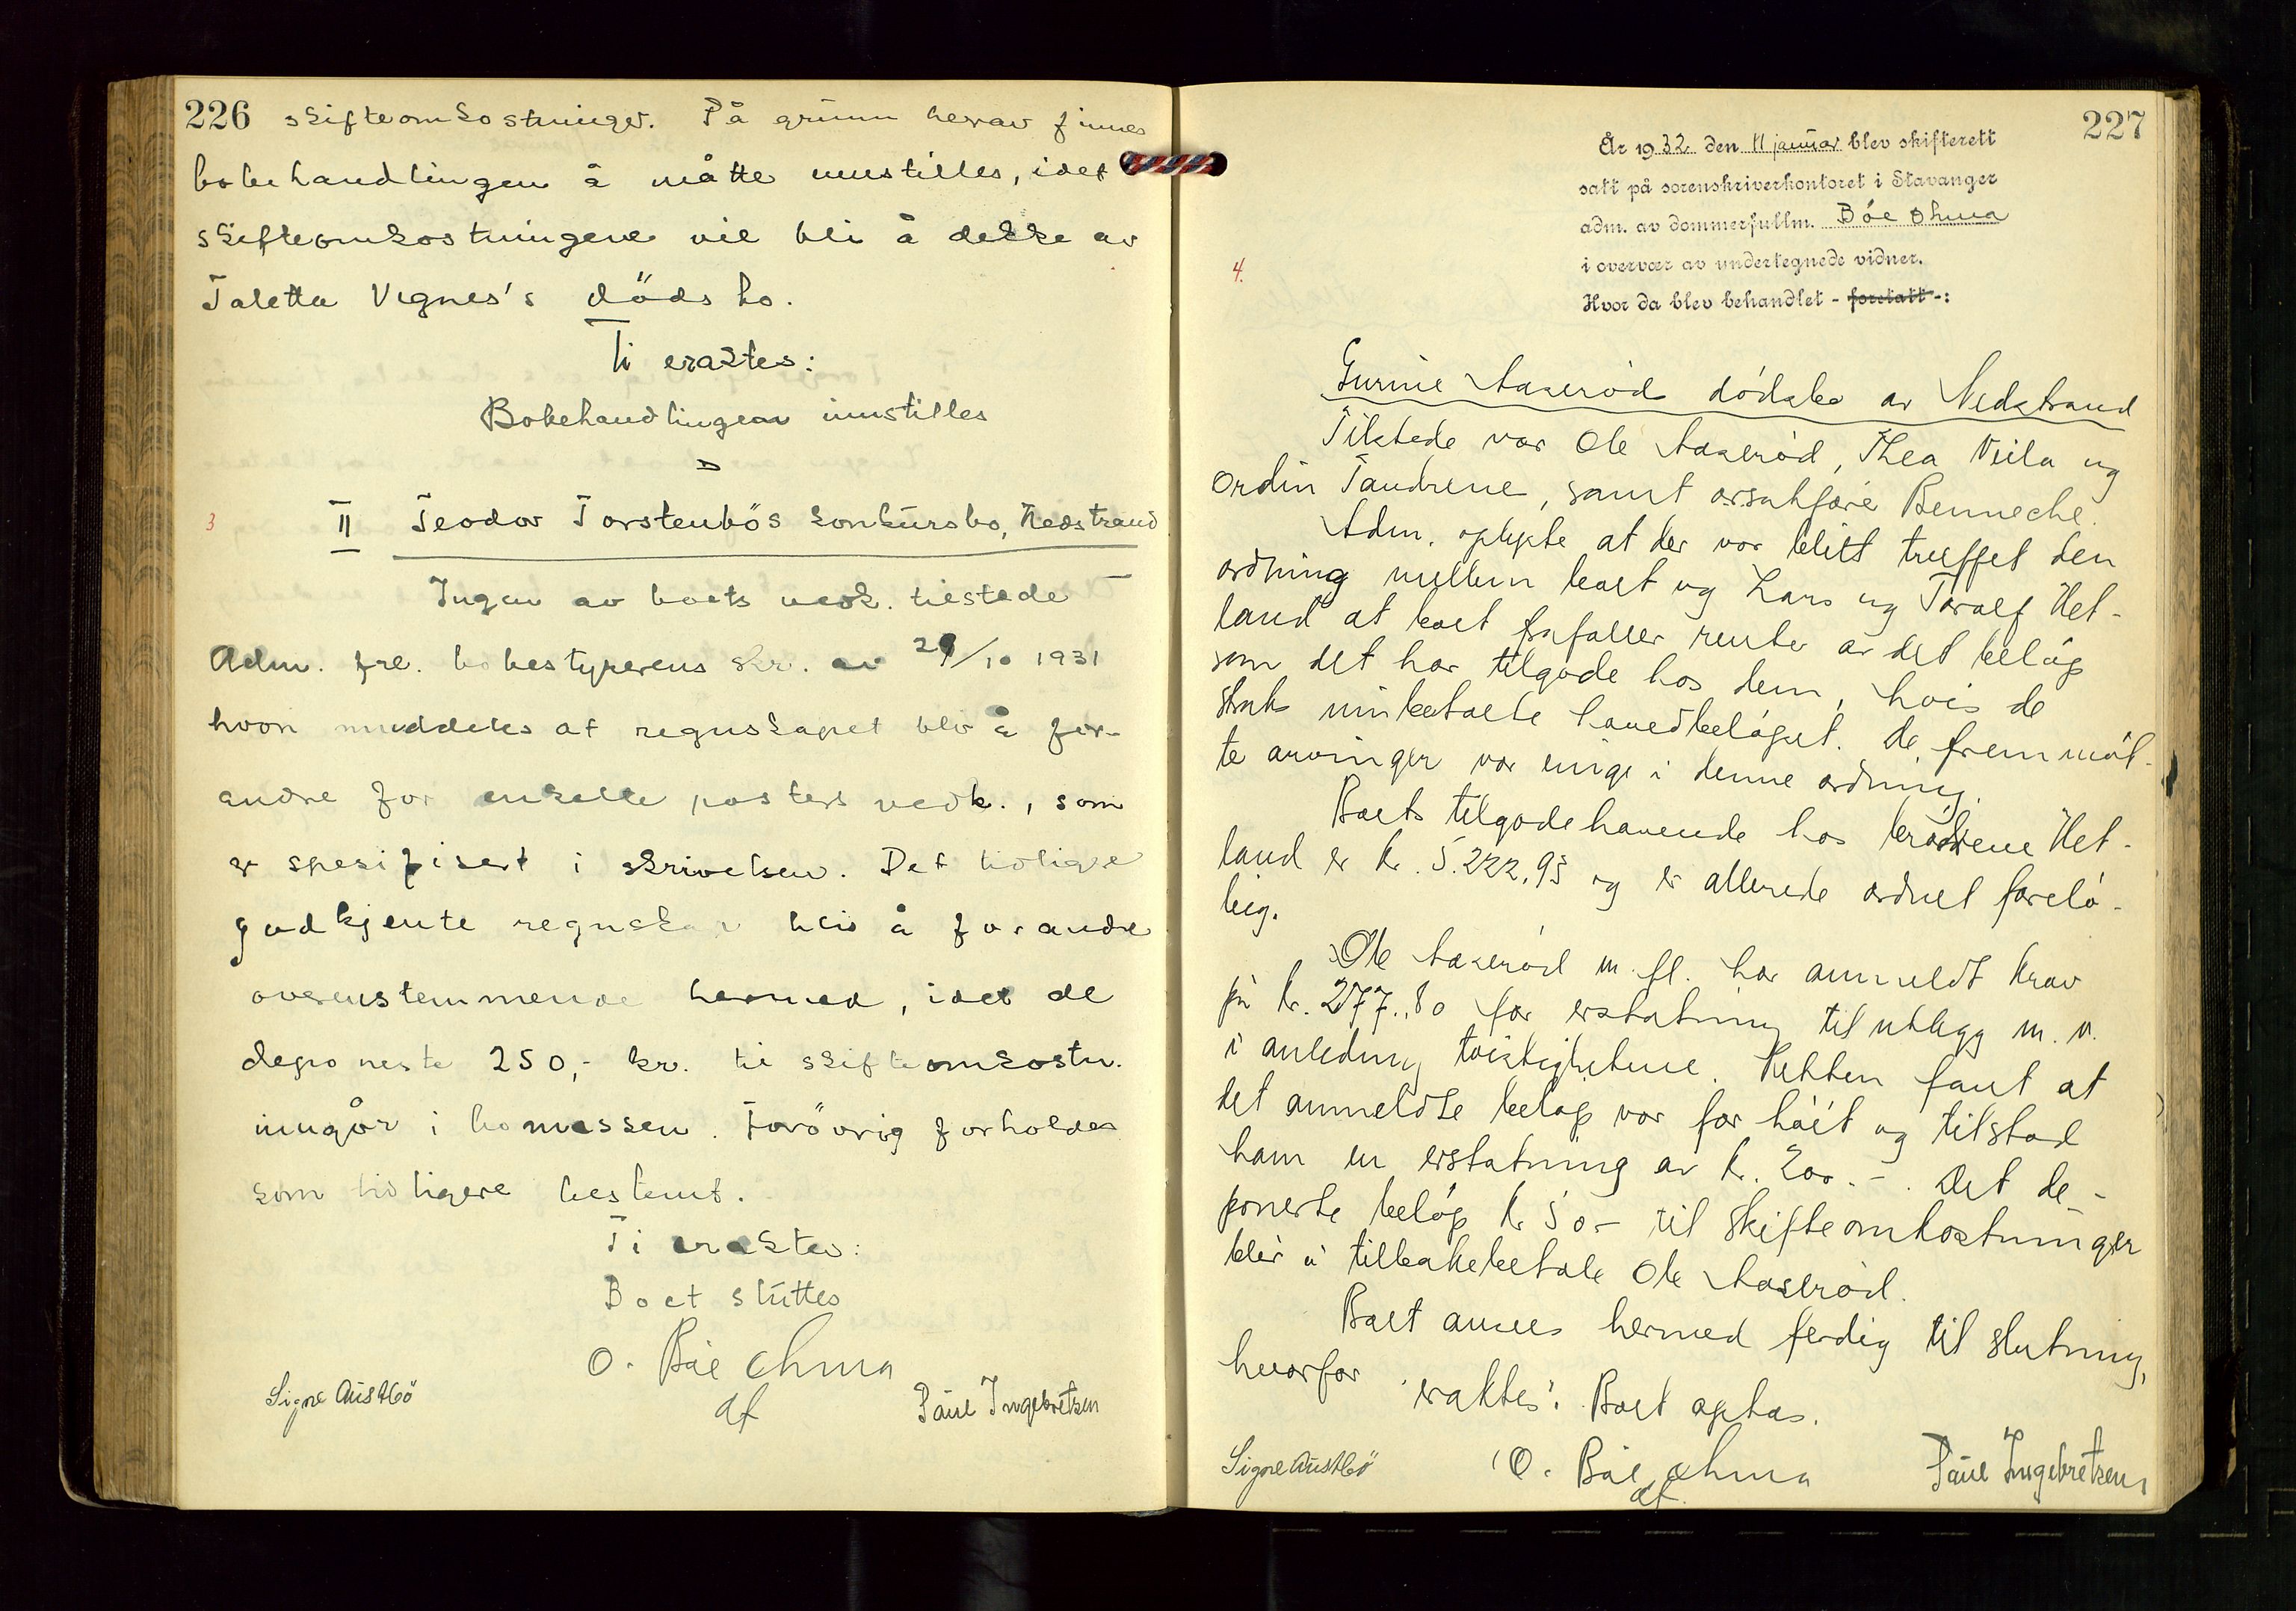 226 skifteomkostninger. På grunn herav finnes
bobehandlingen å måtte innstilles, idet
skifteomkostningene vil bli å dekke av
Taletta Vignes's dödsbo.
Ti eraktes:
Bobehandlingen innstilles
3 II Teodor Torstenbös konkursbo, Nedstrand
Ingen av boets vedk. tilstede
Adm. frl. bobestyrerens skr. av 29/10 1931
hvori meddeles at regnskapet blir å for-
andre for enkelte posters vedk., som
er spesifisert i skrivelsen. Det tidligere
godkjente regnskap blir å forandre
overenstemmende hermed, idet de
deponerte 250,- kr. til skifteomkostn.
inngår i bomassen. Forövrig forholdes
som tidligere bestemt.
Ti eraktes:
Boet sluttes
O. Bøe Ohma
df
Signe Austbö Paul Ingebretsen
227
År 1932 den 11 januar blev skifterett
satt på sorenskriverkontoret i Stavanger
adm. av dommerfullm. Bóe Ohma
i overvær av undertegnede vidner.
4.
Hvor da blev behandlet - foretatt -:
Gurine Aaserød dódsbo av Nedstrand
Tilstede var Ole Aaserød, Thea Viila og
Ordin Tandrene, samt orsakfører Benneche.
Adm. oplyste at der var blitt truffet den
ordning mellem boet og Lars og Toralf Het-
land at boet frafaller rente av det beløp
som det har tilgode hos dem, hvis de
straks innbetalte hovedbeløpet. De fremmøt-
te arvinger var enige i denne ordning.
Boets tilgodehavende hos brødrene Het-
land er kr. 5.222,95 og er allerede ordnet forelø-
big.
Ole Aaserød m. fl. har anmeldt krav
på kr. 277.80 for erstatning til utlegg m. v.
i anledning tvistighetene. Retten fant at
det anmeldte beløp var for høit og tilstod
ham en erstatning av kr. 200.-. Det de-
ponerte beløp kr 50- til skifteomkostninger
blir å tilbakebetale Ole Aaserød.
Boet ansees hermed ferdig til slutning,
hvorfor eraktes: Boet optas.
Signe Austbö O. Bøe Ohma Paul Ingebretsen
df.